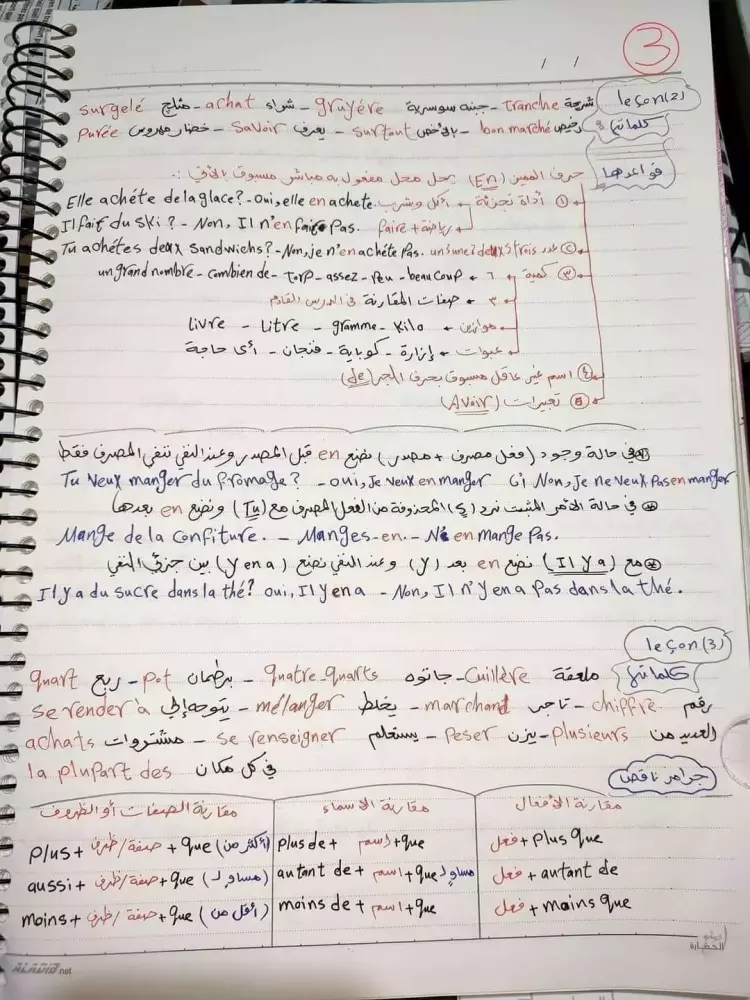 3
/ /
leçon(2)
surgelé مثلج - achat شراء - gruyére جبنه سويسرية - tranche شريحة
كلماتها
purée خضار مهروس - Savoir يعرف - surtout بالأخص - bon marché رخيص
قواعدها
حرف الضمير (En) يحل محل مفعول به مباشر مسبوق بالأتي :-
Elle achéte de la glace? - Oui, elle en achete. أكل وشرب ① أداة تجزئة
Il fait du ski? - Non, Il n'en fait pas. faire + رياضة
Tu achétes deux Sandwichs? - Non, je n'en achéte pas. un / une / deux / trois عدد ②
un grand nombre - combien de - torp - assez - peu - beaucoup ③ كمية
صفات المقارنة في الدرس القادم
Livre - Litre - gramme - kilo موازين
عبوات ← إزازة - كوباية - فنجان - أى حاجة
④ اسم غير عاقل مسبوق بحرف الجر (de)
⑤ تعبيرات (Avoir)
في حالة وجود (فعل مصرف + مصدر) نضع en قبل المصدر وعند النفي ننفي المصرف فقط
Tu veux manger du fromage? - oui, Je veux en manger أو Non, Je ne veux pas en manger
في حالة الأمر المثبت نرد (s) المحذوفة من الفعل المصرف مع (Tu) ونضع en بعدها
Mange de la confiture. - Manges-en. - N'en mange Pas.
مع (Il y a) نضع en بعد (y) وعند النفي نضع (y en a) بين جزئي النفي
Il y a du sucre dans la thé? oui, Il y en a - Non, Il n'y en a Pas dans la thé.
leçon(3)
كلماتها
quart ربع - pot برطمان - quatre-quarts جاتوه - Cuillère ملعقة
se render à يتوجه إلي - mélanger يخلط - marchand تاجر - chiffre رقم
achats مشتروات - se renseigner يستعلم - Peser يزن - plusieurs العديد من
la plupart des في كل مكان
جرامر ناقص
مقارنة الصفات أو الظروف مقارنة الأسماء مقارنة الأفعال
plus + صفة/ظرف + que (أكثر من) plus de + اسم + que فعل + plus que
aussi + صفة/ظرف + que (مساو لـ) autant de + اسم + que مساو لـ فعل + autant de
moins + صفة/ظرف + que (أقل من) moins de + اسم + que فعل + moins que
الحضارة
.net